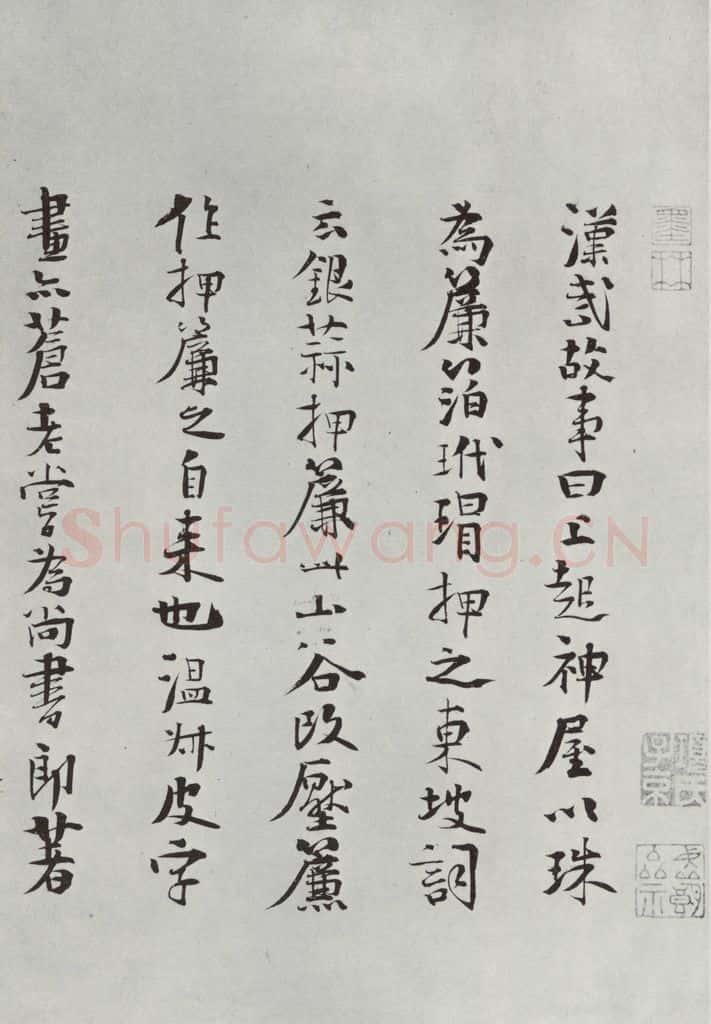 墨林
漢武故事曰上起神屋以珠
為簾箔玳瑁押之東坡詞
云銀蒜押簾此山谷改壓簾
作押簾之自来也温叔皮字
畫亦蒼老嘗為尚書郎著
項氏子京
Shufawang.CN